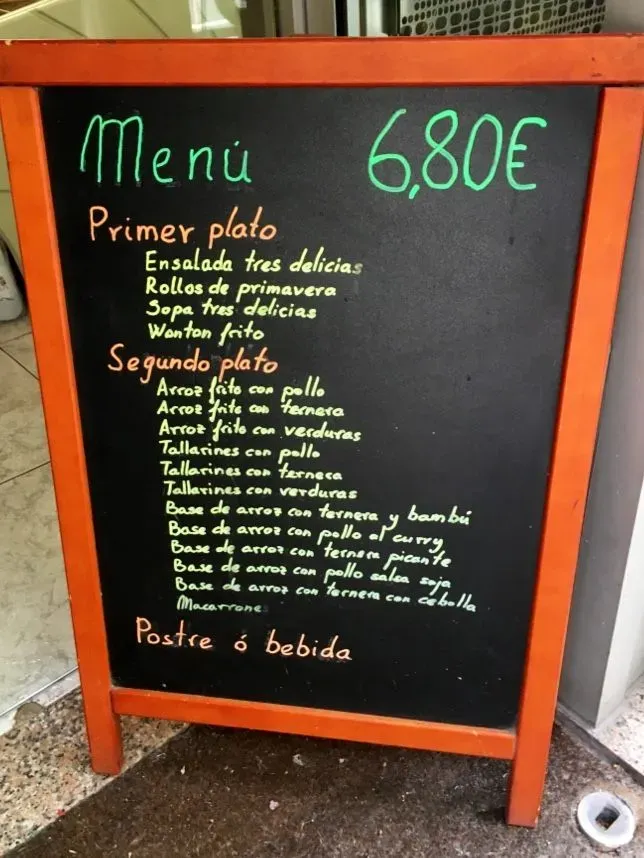 Menú 6,80€
Primer plato
Ensalada tres delicias
Rollos de primavera
Sopa tres delicias
Wanton frito
Segundo plato
Arroz frito con pollo
Arroz frito con ternera
Arroz frito con verduras
Tallarines con pollo
Tallarines con ternera
Tallarines con verduras
Base de arroz con ternera y bambú
Base de arroz con pollo al curry
Base de arroz con ternera picante
Base de arroz con pollo salsa soja
Base de arroz con ternera con cebolla
Macarrone
Postre ó bebida